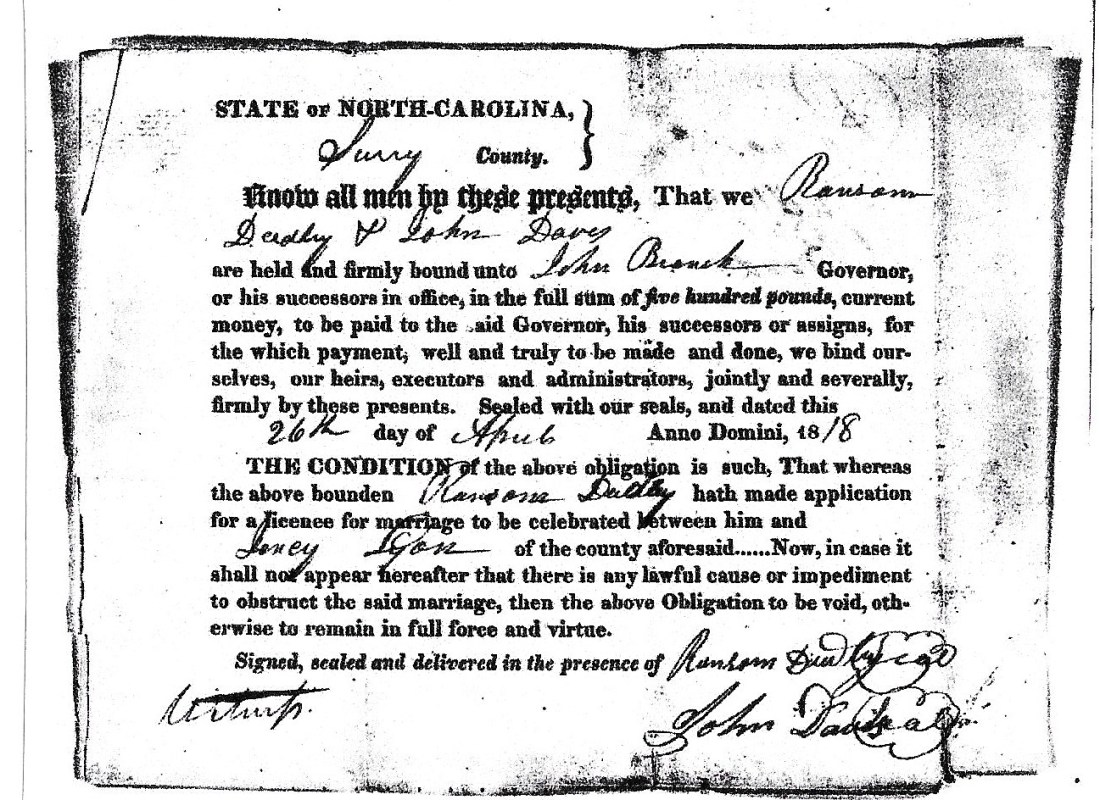 STATE OF NORTH-CAROLINA, }
Surry County.
Know all men by these presents, That we Ransom
Dudley & John Davis
are held and firmly bound unto John Branch Governor,
or his successors in office, in the full sum of five hundred pounds, current
money, to be paid to the said Governor, his successors or assigns, for
the which payment, well and truly to be made and done, we bind our-
selves, our heirs, executors and administrators, jointly and severally,
firmly by these presents. Sealed with our seals, and dated this
26th day of April Anno Domini, 1818
THE CONDITION of the above obligation is such, That whereas
the above bounden Ransom Dudley hath made application
for a licence for marriage to be celebrated between him and
Lyon of the county aforesaid......Now, in case it
shall not appear hereafter that there is any lawful cause or impediment
to obstruct the said marriage, then the above Obligation to be void, oth-
erwise to remain in full force and virtue.
Signed, sealed and delivered in the presence of Ransom Dudley seal
John Davis seal